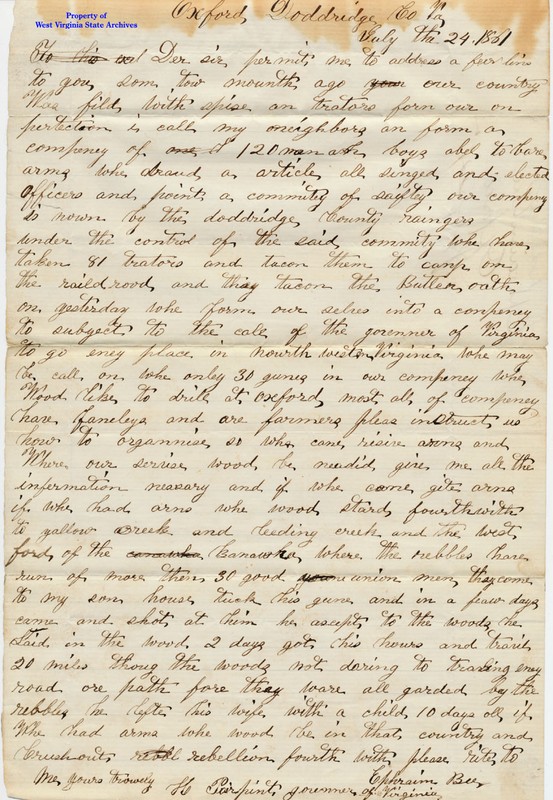 Property of
West Virginia State Archives
Oxford, Doddridge Co Va
July th 24. 1861
To this Der sir, permit, me to address a few lins
to you, som, tow mounth, ago our country
Was fild, with spise, an trators forn our on
pertection is call, my neighbors an form, a
compeney of 120 man boys abel, to bare
arms, whe draud, a article, all singed, and, elected
Officers, and point, a commity, of safty, our compeny
is nown by the doddridge, County raingers
under the control of the said, commity whe have
taken 81 trators, and tacon them to camp on
the raildrood, and thay tacon the, Butler, oath
on yesterday whe form our selves into a compeney
to subject, to the call, of the govenner of Virginia
to go eney place, in nowrth western, Virginia, whe may
be, call, on, whe onley 30 gunes, in our compeney whe
Wood, like, to drill, at oxford, most, all, of, compeney
have, faneleys, and are farmers, pleas, instruct, us
how to organnise, so whe, cane, risive arms, and
Where our servise, wood, be needid, give, me, all, the
information nessary, and if whe came, gite, arms
if, whe had arms whe wood stard, fourthwith
to yallow creek, and leeding creek, and the west
ford, of the canawha Canawha, where the rebbles have
run of more then 30 good union men, thay came
to my son house, tuck his gune, and in a feaw days
came, and shot, at him he, ascapt to the woods, he
Laid in the wood, 2 days, got, his hours, and travil
20 miles thoug the woods, not daring to traving eney
road ore path fore thay ware all garded, by the
rebbles, he lefte, his wife, with a child, 10 days, old, if
Whe had arms whe wood be in that, country and
Crush out, rebel rebellion, fourth with, please rite, to
Me, yours trowely Ephraim Bee,
H Pirpint, govenner of Virginia,